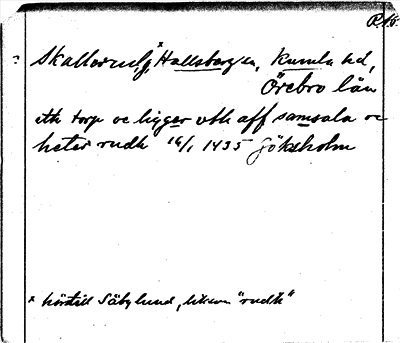 Hallsbergs sn, Kumla hd,
Örebro län
eth torp oc ligger vth aff samsala oc
heter rudh 16/1 1435 Göksholm
x hörde till Säbylund, liksom "rudh"